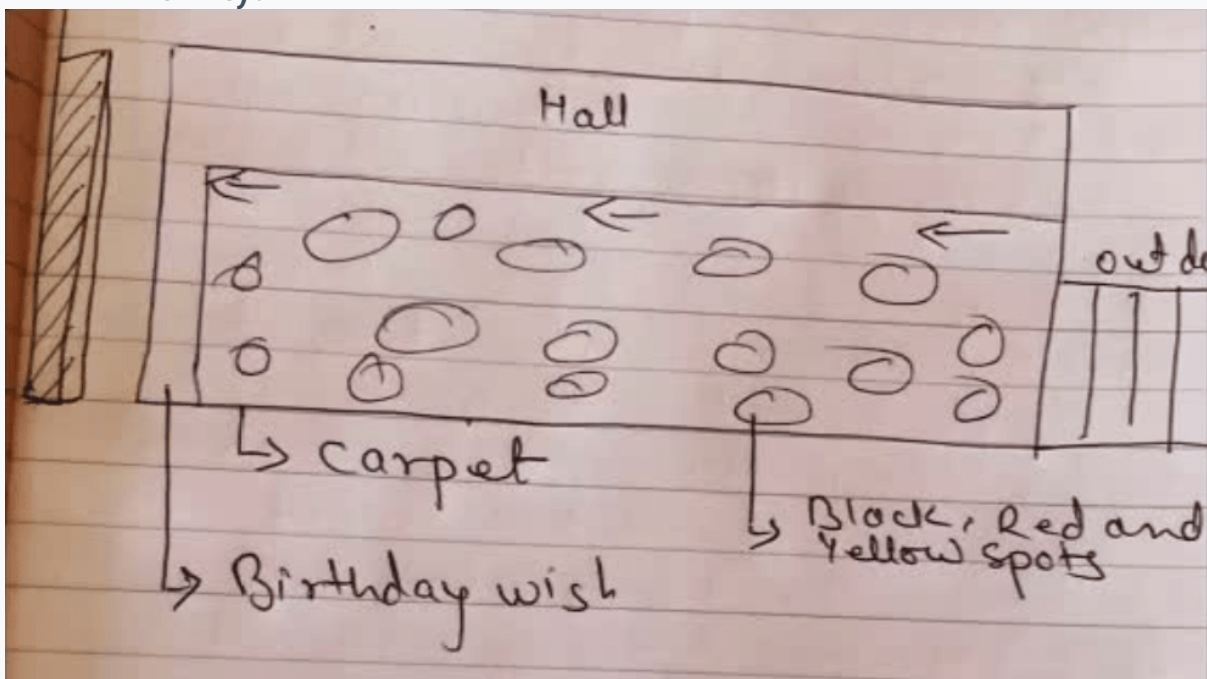 Hall
out do
Carpet
Black, Red and
Yellow spots
Birthday wish